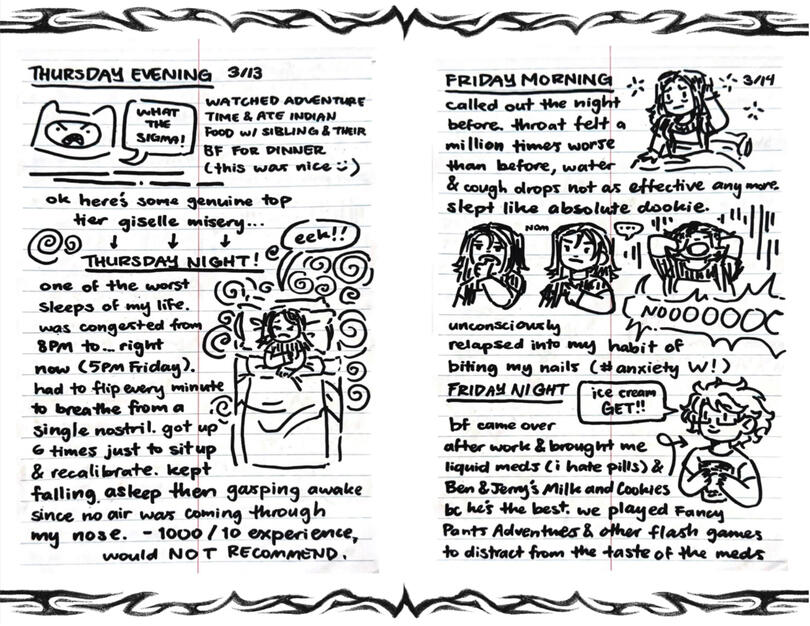 THURSDAY EVENING 3/13
WHAT
THE
SIGMA!
WATCHED ADVENTURE
TIME & ATE INDIAN
FOOD W/ SIBLING & THEIR
BF FOR DINNER
(this was nice :))
ok here's some genuine top
tier giselle misery...
eek!!
THURSDAY NIGHT!
one of the worst
sleeps of my life.
was congested from
8PM to... right
now (5PM Friday).
had to flip every minute
to breathe from a
single nostril. got up
6 times just to sit up
& recalibrate. kept
falling asleep then gasping awake
since no air was coming through
my nose. -1000/10 experience,
would NOT RECOMMEND.
FRIDAY MORNING 3/14
called out the night
before. throat felt a
million times worse
than before, water
& cough drops not as effective anymore.
slept like absolute dookie.
NOM
...
NOOOOOOO
unconsciously
relapsed into my habit of
biting my nails (#anxiety W!)
FRIDAY NIGHT
ice cream
GET!!
bf came over
after work & brought me
liquid meds (i hate pills) &
Ben & Jerry's Milk and Cookies
bc he's the best. we played Fancy
Pants Adventures & other flash games
to distract from the taste of the meds